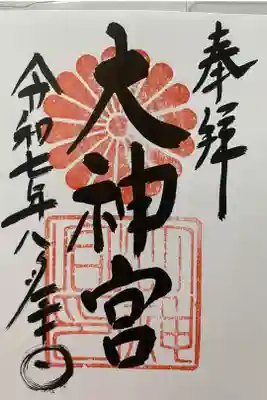 奉拝
大神宮
令和七年八月